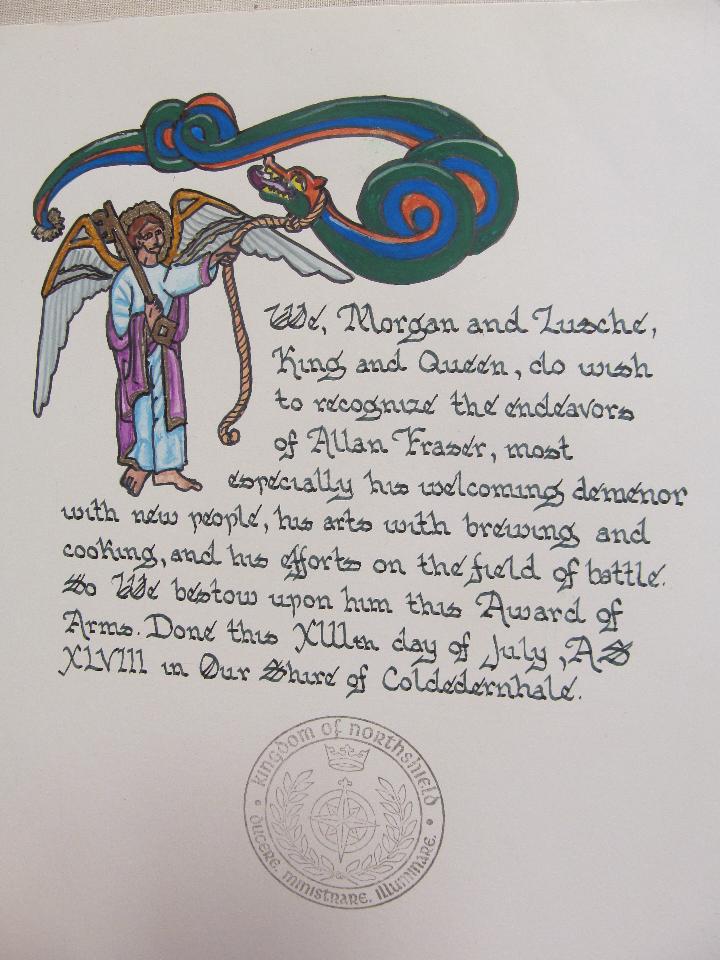 We, Morgan and Zusche,
King and Queen, do wish
to recognize the endeavors
of Allan Fraser, most
especially his welcoming demenor
with new people, his arts with brewing and
cooking, and his efforts on the field of battle.
So We bestow upon him this Award of
Arms. Done this XIIIth day of July, AS
XLVIII in Our Shire of Coldedernhale.
Kingdom of Northshield
Ducere. Ministrare. Illuminare.